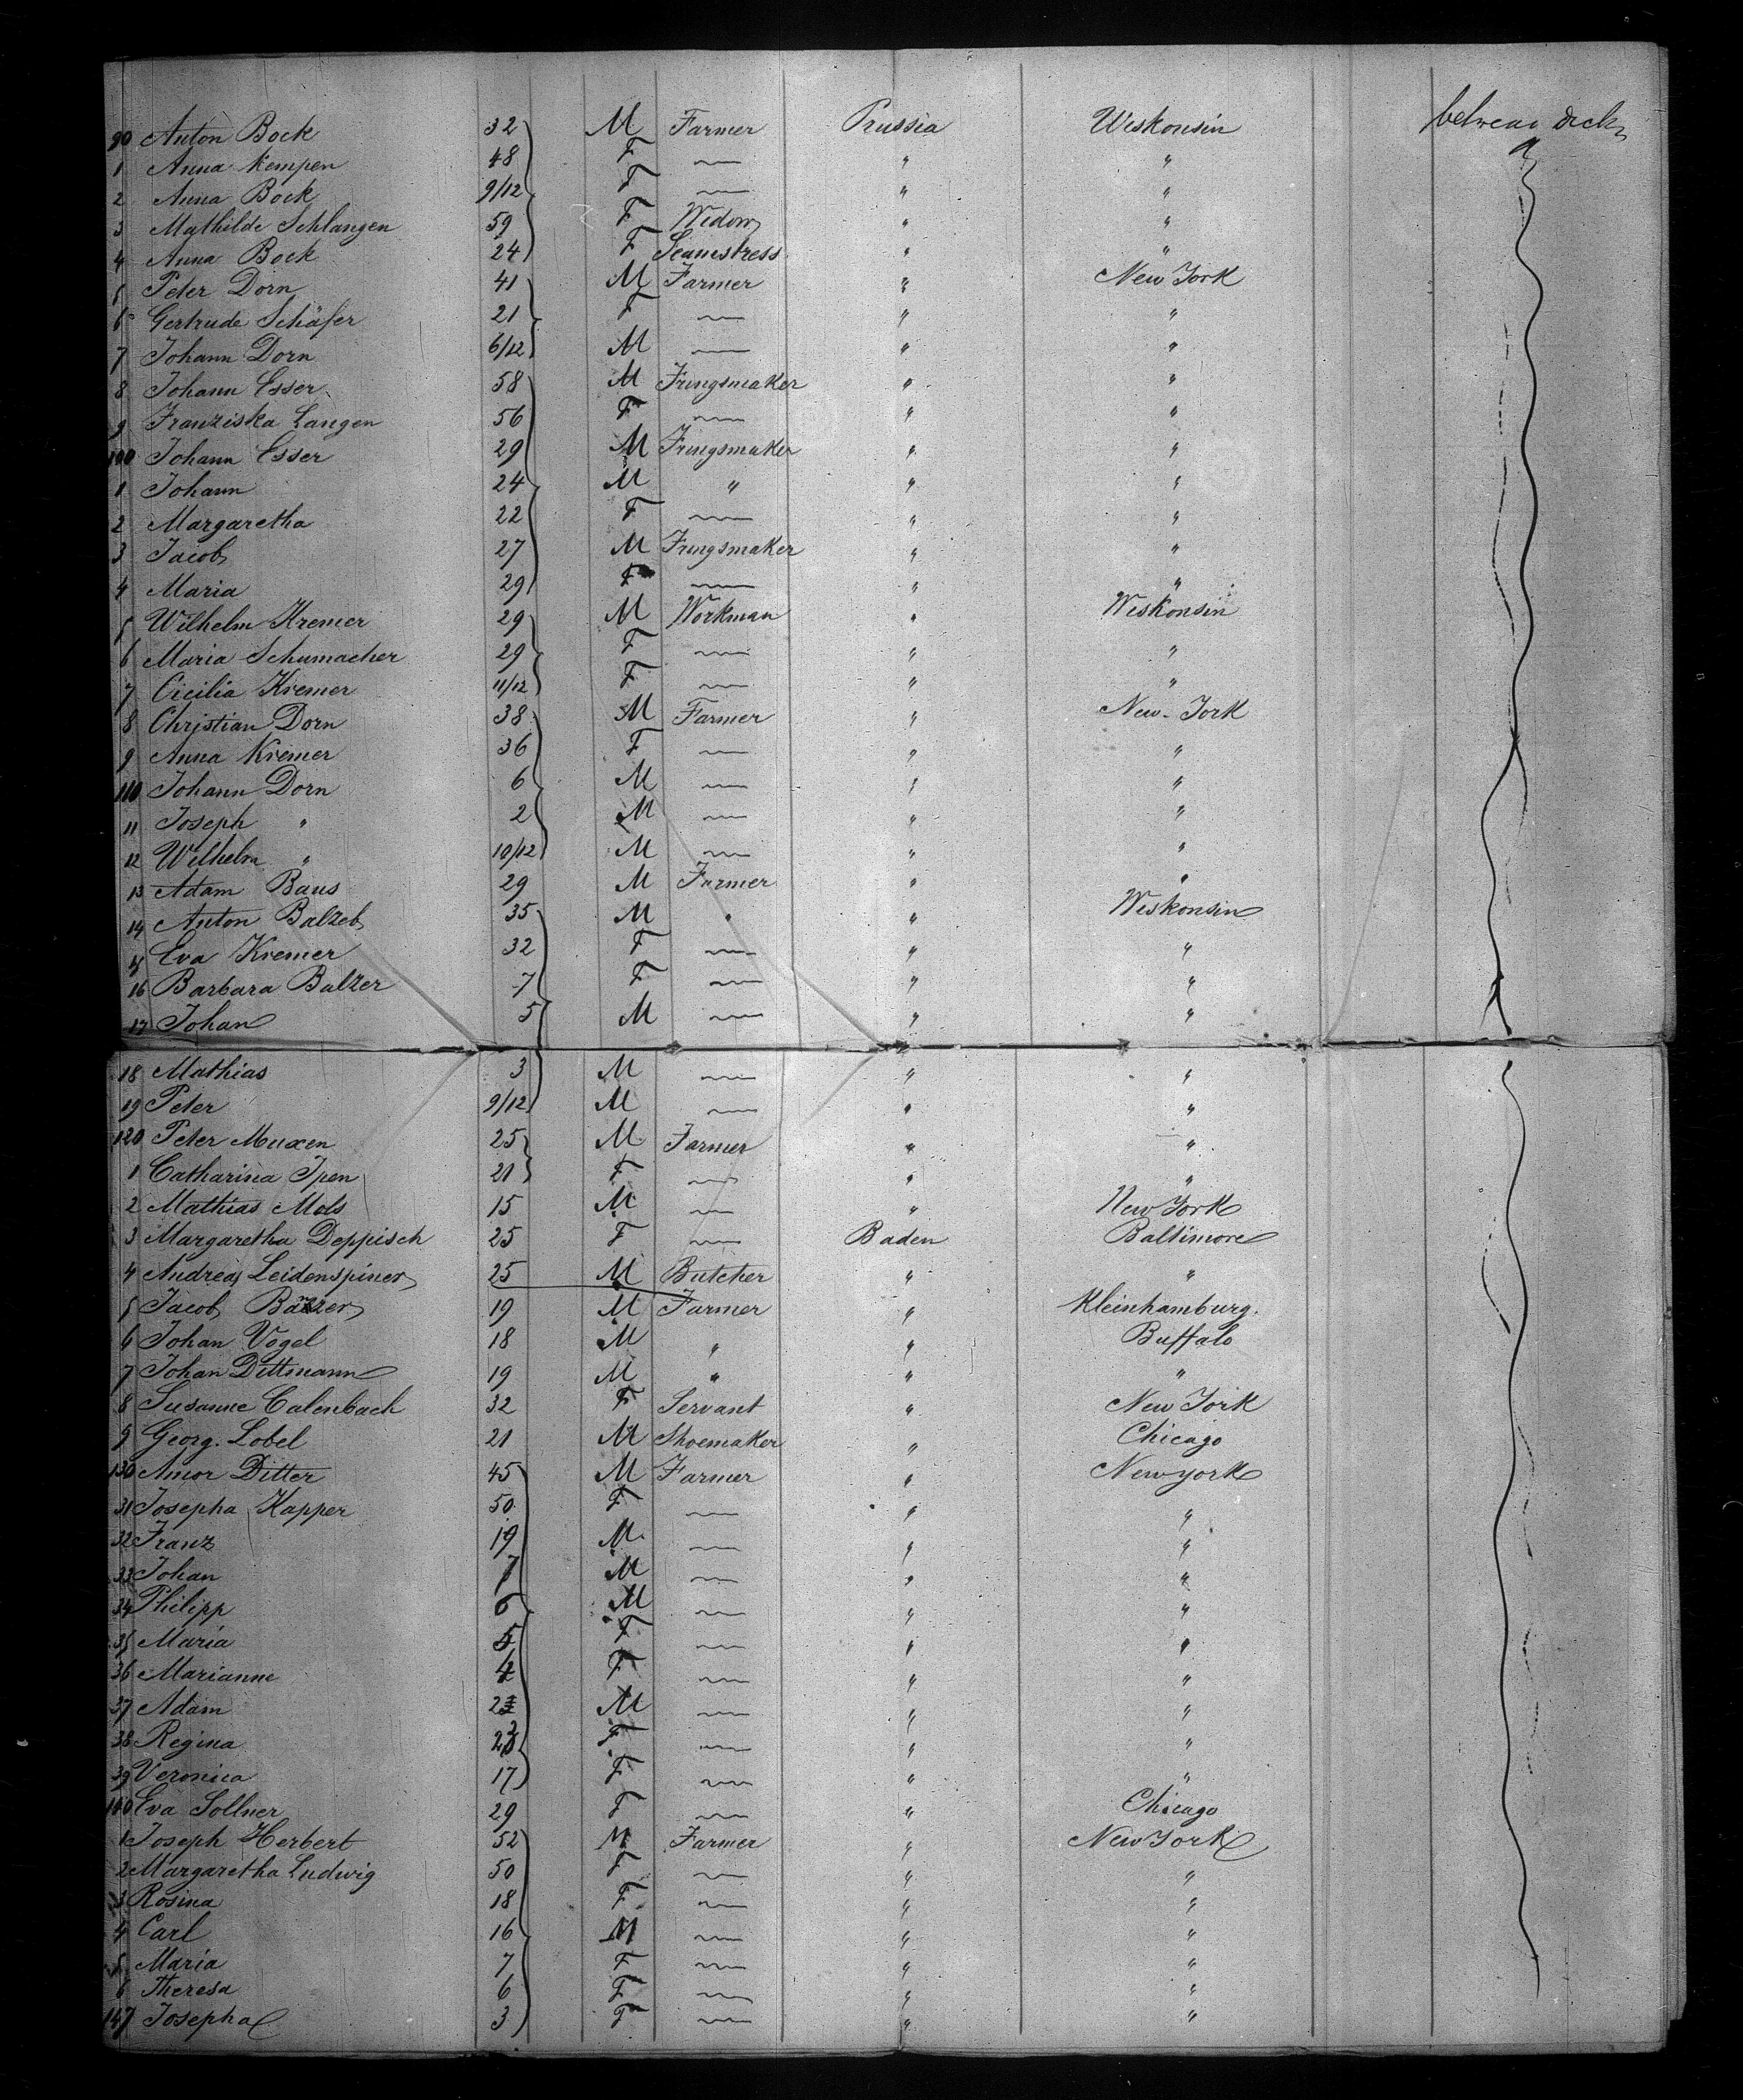 90 Anton Bock 32 M Farmer Prussia Wiskonsin between decks
1 Anna Kempen 48 F — " "
2 Anna Bock 9/12 F — " "
3 Mathilde Schlangen 59 F Widow " "
4 Anna Bock 24 F Seamstress " "
5 Peter Dorn 41 M Farmer " New York
6 Gertrude Schäfer 21 F — " "
7 Johann Dorn 6/12 M — " "
8 Johann Esser 58 M Fringsmaker " "
9 Franziska Langen 56 F — " "
100 Johann Esser 29 M Fringsmaker " "
1 Johann 24 M " " "
2 Margaretha 22 F — " "
3 Jacob 27 M Fringsmaker " "
4 Maria 29 F — " "
5 Wilhelm Kremer 29 M Workman " Wiskonsin
6 Maria Schumacher 29 F — " "
7 Cicilia Kremer 11/12 F — " "
8 Christian Dorn 38 M Farmer " New-York
9 Anna Kremer 36 F — " "
110 Johann Dorn 6 M — " "
11 Joseph " 2 M — " "
12 Wilhelm " 10/12 M — " "
13 Adam Baus 29 M Farmer " "
14 Anton Balzeb 35 M " " Wiskonsin
15 Eva Kremer 32 F — " "
16 Barbara Balzer 7 F — " "
17 Johan 5 M — " "
18 Mathias 3 M — " "
19 Peter 9/12 M — " "
120 Peter Muxen 25 M Farmer " "
1 Catharina Ipen 21 F — " "
2 Mathias Mols 15 M — " New York
3 Margaretha Deppisch 25 F — Baden Baltimore
4 Andreas Leidenspiner 25 M Butcher " "
5 Jacob 19 M Farmer " Kleinhamburg.
6 Johan Vogel 18 M " " Buffalo
7 Johan Dittmann 19 M " " "
8 Susanne Calenbach 32 F Servant " New York
9 Georg. Lobel 21 M Shoemaker " Chicago
130 Amor Ditter 45 M Farmer " Newyork
31 Josepha Kapper 50 F — " "
32 Franz 19 M — " "
33 Johan 7 M — " "
34 Philipp 6 M — " "
35 Maria 5 F — " "
36 Marianne 4 F — " "
37 Adam M — " "
38 Regina F — " "
39 Veronica 17 F — " "
140 Eva Sollner 29 F — " Chicago
1 Joseph Herbert 52 M Farmer " New York
2 Margaretha Ludwig 50 F — " "
3 Rosina 18 F — " "
4 Carl 16 M — " "
5 Maria 7 F — " "
6 Theresa 6 F — " "
147 Josepha 3 F — " "